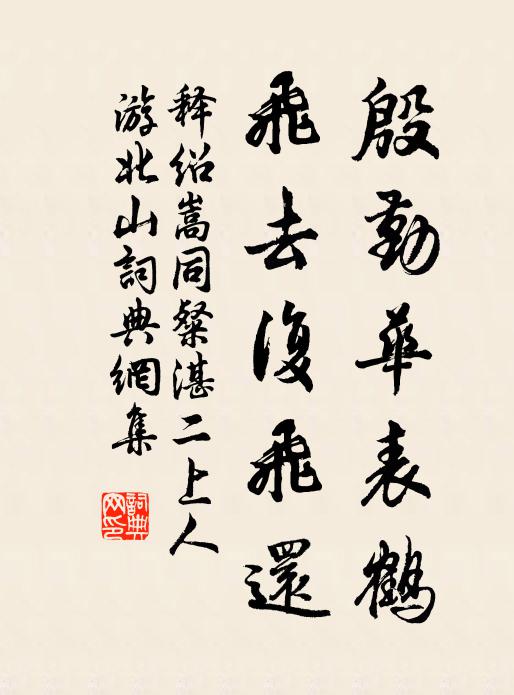 殷勤華表鶴
飛去復飛還
释紹嵩同粲湛二上人
游北山詞典網集
詞典网印